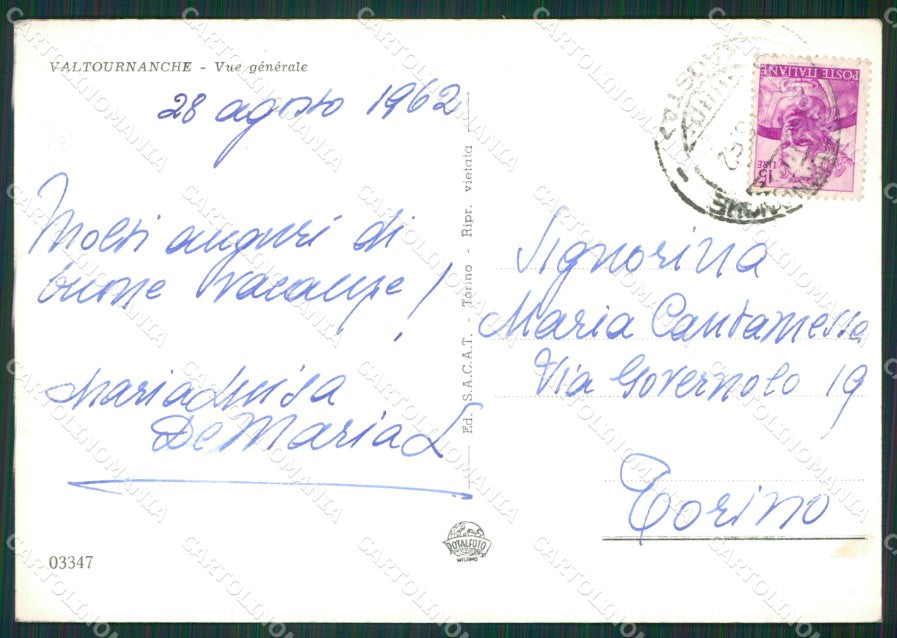 VALTOURNANCHE - Vue générale
28 agosto 1962
Molti auguri di
buone vacanze!
Maria Luisa
De Maria L
03347
Ed. S.A.C.A.T. - Torino - Ripr. vietata
ROTALFOTO
MILANO
POSTE ITALIANE
15
LIRE
AOSTA
Signorina
Maria Cantamessa
Via Governolo 19
Torino
CARTOLINOMANIA